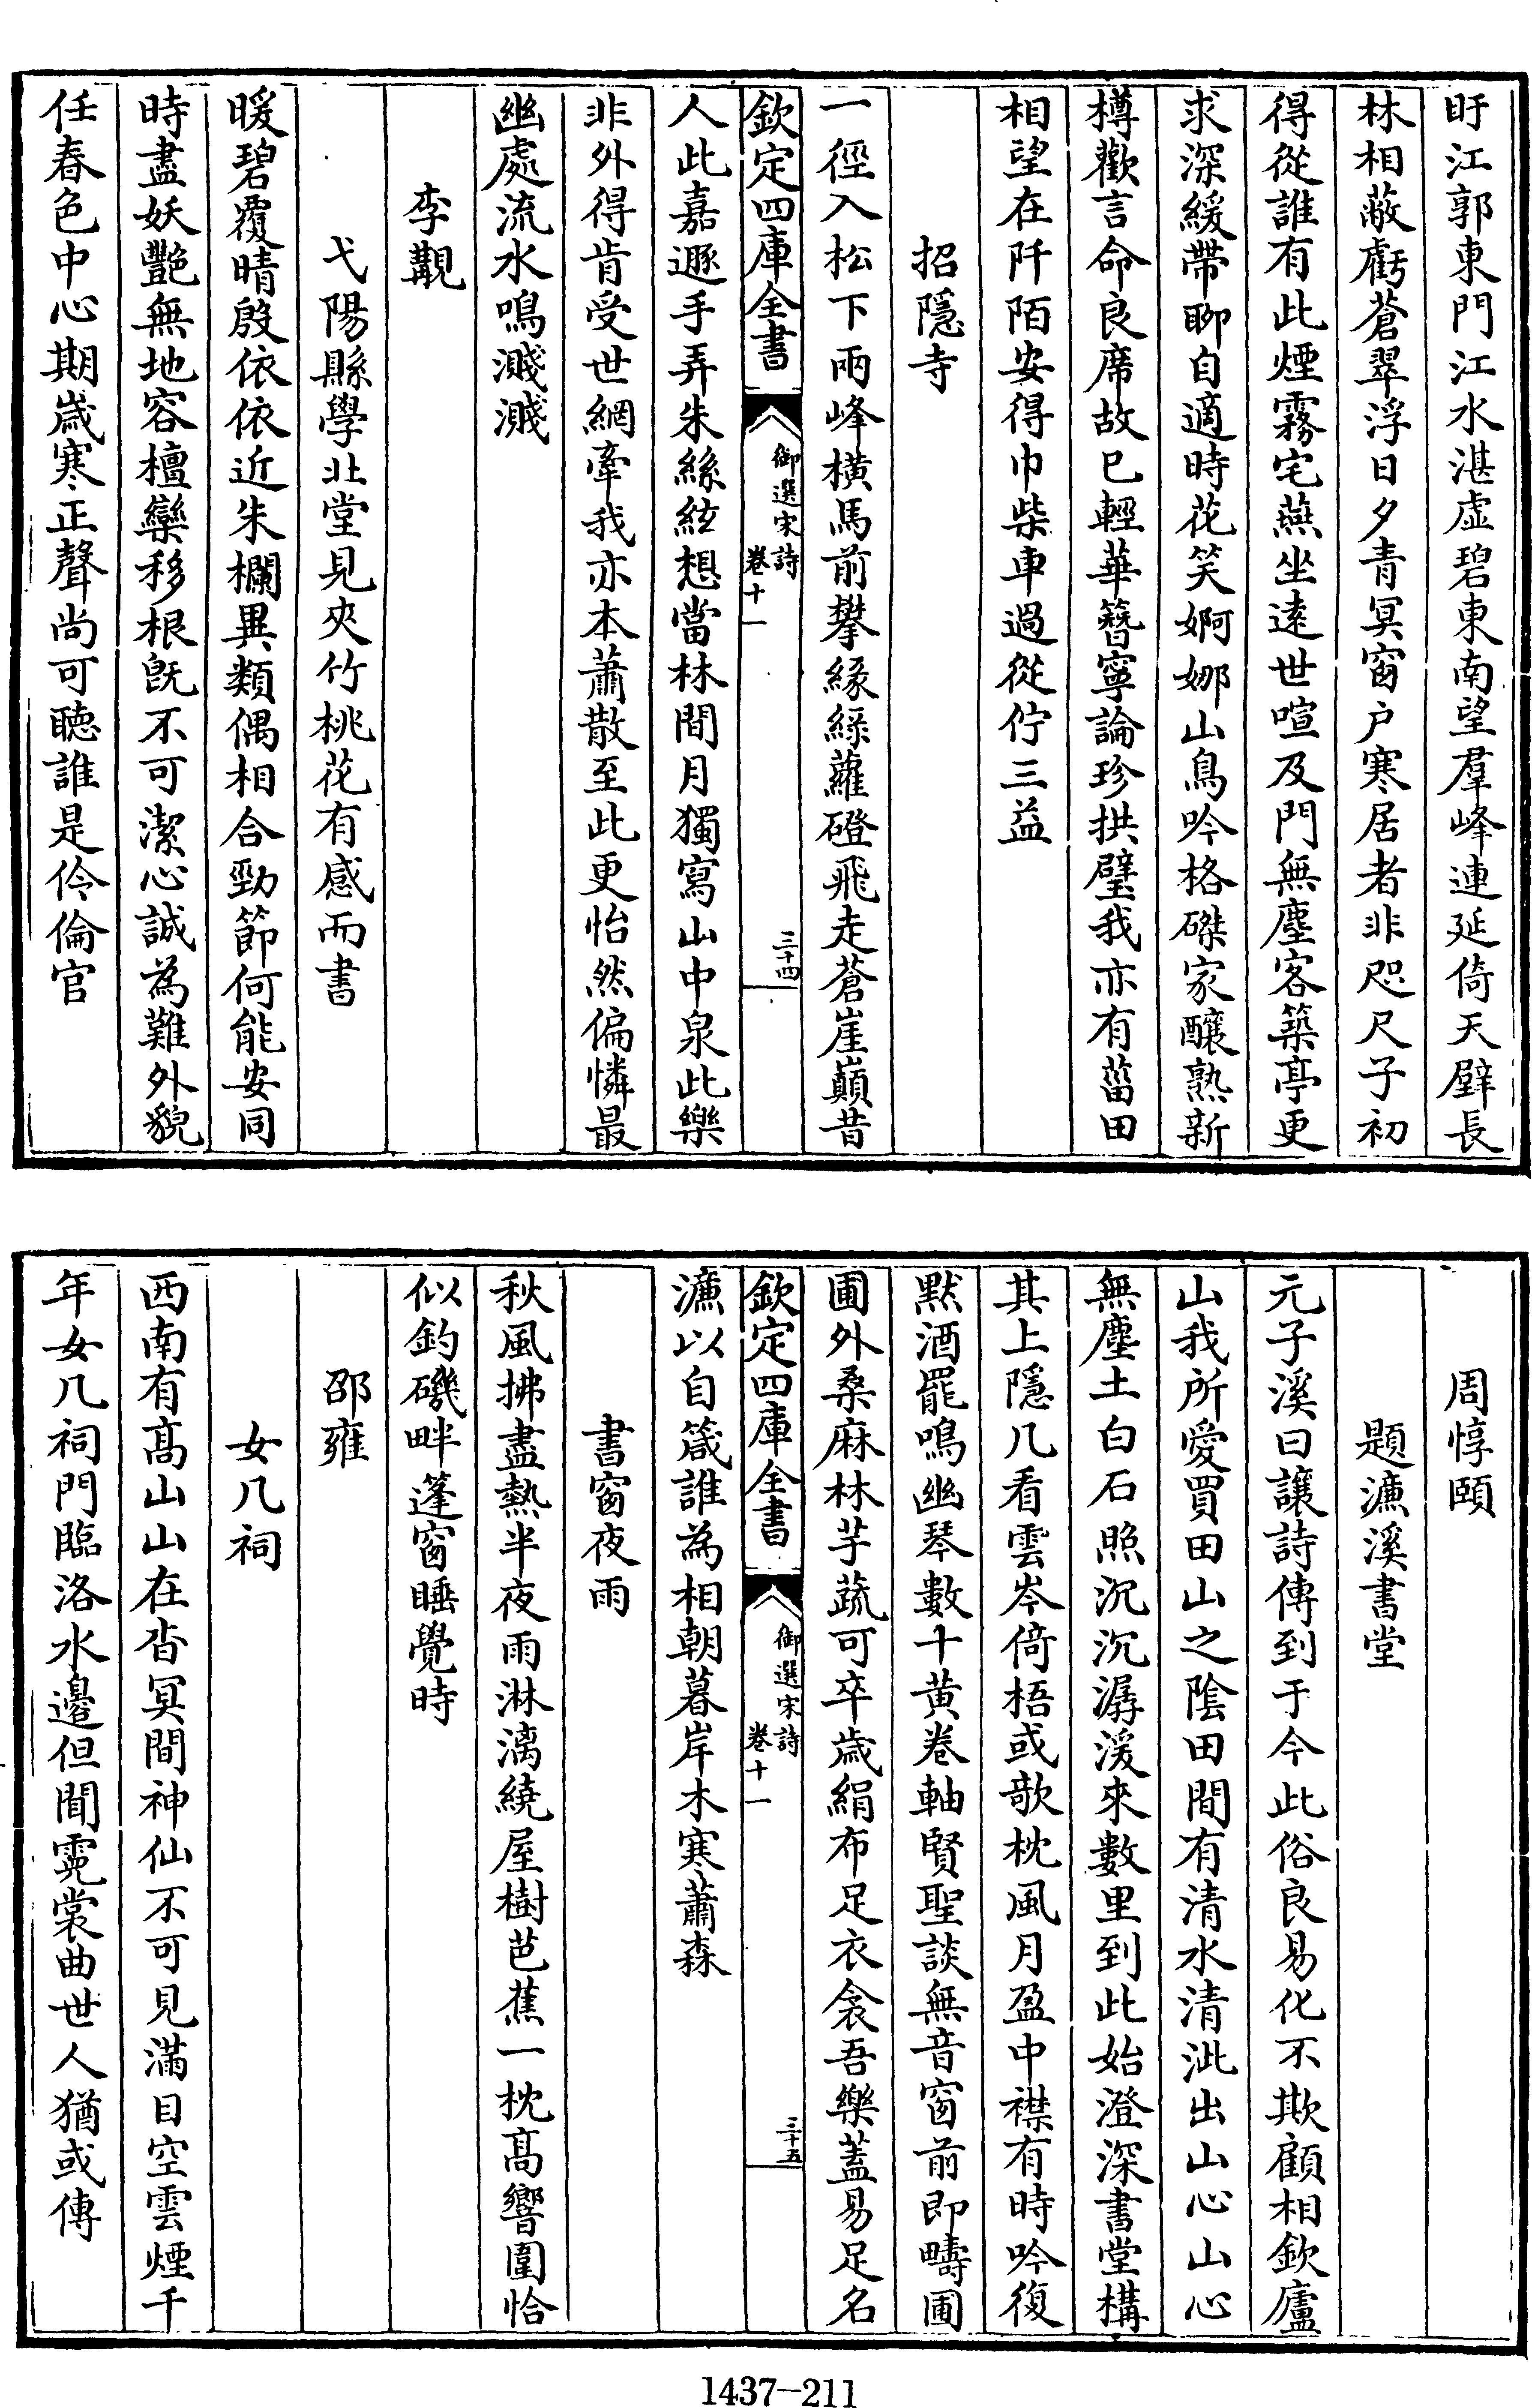 盱江郭東門江水湛虚碧東南望羣峰連延倚天壁長
林相蔽虧蒼翠浮日夕青冥窗户寒居者非咫尺子初
得從誰有此煙霧宅燕坐逺世喧及門無塵客築亭更
求深緩帶聊自適時花笑婀娜山鳥吟格磔家釀熟新
樽歡言命良席故已輕華簪寧論珍拱璧我亦有菑田
相望在阡陌安得巾柴車過從佇三益
招隱寺
一徑入松下兩峰横馬前攀緣緑蘿磴飛走蒼崖巔昔
欽定四庫全書
御選宋詩
卷十一
三十四
人此嘉遯手弄朱絲絃想當林間月獨寫山中泉此樂
非外得肯受世網牽我亦本蕭散至此更怡然偏憐最
幽處流水鳴濺濺
李覯
弋陽縣學北堂見夾竹桃花有感而書
暖碧覆晴殷依依近朱欄異類偶相合勁節何能安同
時盡妖艷無地容檀欒移根旣不可潔心誠為難外貌
任春色中心期歲寒正聲尚可聽誰是伶倫官
周惇頤
題濂溪書堂
元子溪曰讓詩傳到于今此俗良易化不欺顧相欽廬
山我所愛買田山之陰田間有清水清泚出山心山心
無塵土白石照沉沉潺湲來數里到此始澄深書堂構
其上隱几看雲岑倚梧或欹枕風月盈中襟有時吟復
默酒罷鳴幽琴數十黄卷軸賢聖談無音窗前即疇圃
圃外桑麻林芋蔬可卒歲絹布足衣衾吾樂蓋易足名
欽定四庫全書
御選宋詩
卷十一
三十五
濂以自箴誰為相朝暮岸木寒蕭森
書窗夜雨
秋風拂盡熱半夜雨淋漓繞屋樹芭蕉一枕髙響圍恰
似釣磯畔篷窗睡覺時
邵雍
女几祠
西南有髙山山在杳冥間神仙不可見滿目空雲煙千
年女几祠門臨洛水邊但聞霓裳曲世人猶或傳
1437-211